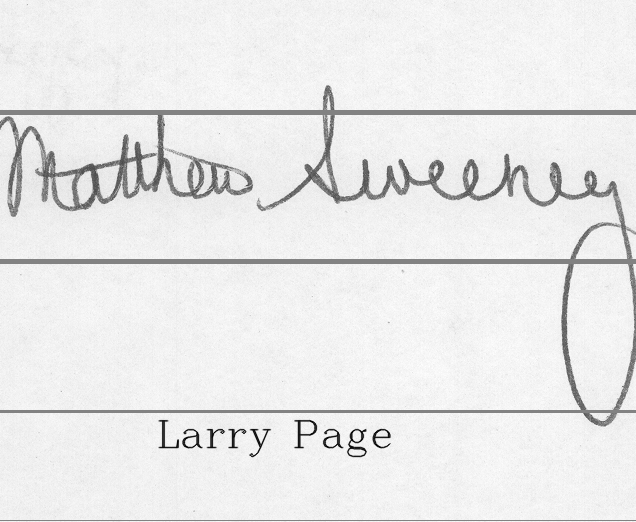 Matthew Sweeney
Larry Page